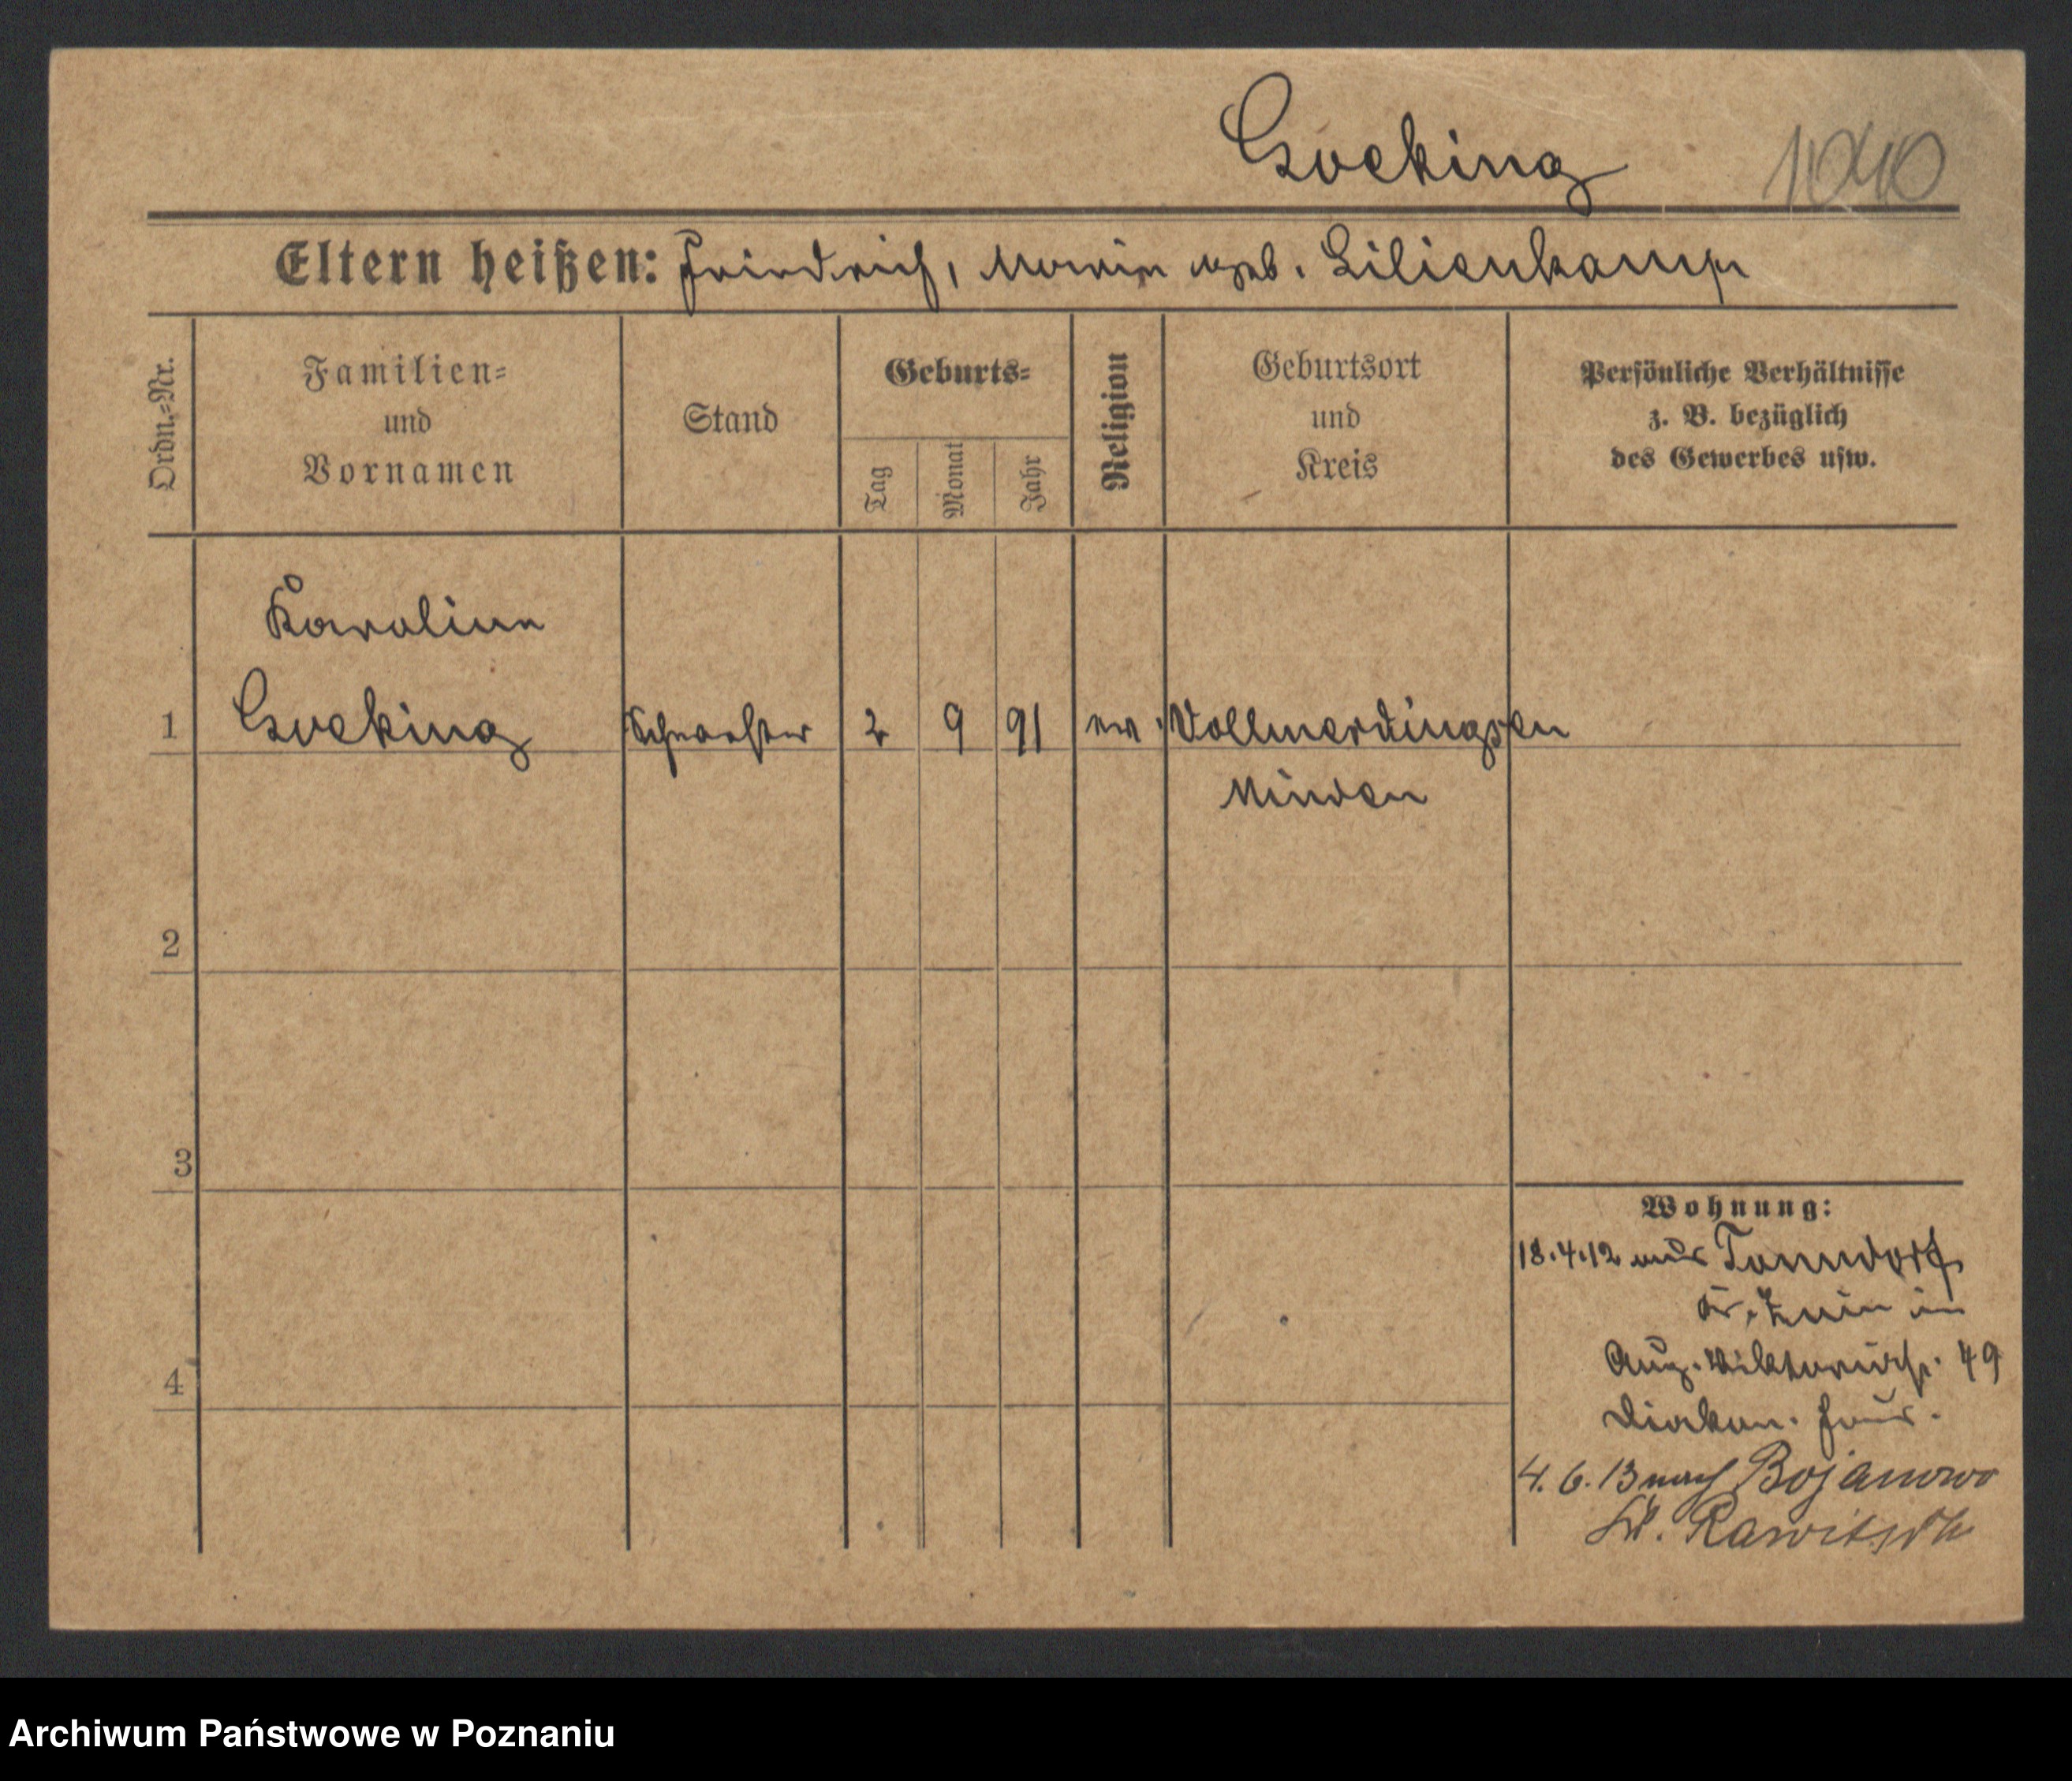 Gocking 1040
Eltern heißen: Friedrich, Marie geb. Lilienkamp
Ordn.-Nr.
Familien-
und
Vornamen
Stand
Geburts-
Tag
Monat
Jahr
Religion
Geburtsort
und
Kreis
Persönliche Verhältnisse
z. B. bezüglich
des Gewerbes usw.
Karoline
1 Gocking Schwester 2 9 91 ev. Vollmerdingsen
Minden
2
3
4
Wohnung:
18.4.12 aus Tonndorf
Kr. Znin in
Aug. Viktoriastr. 49
Diakon. Haus.
4. 6. 13 nach Bojanowo
Kr. Rawitsch
Archiwum Państwowe w Poznaniu